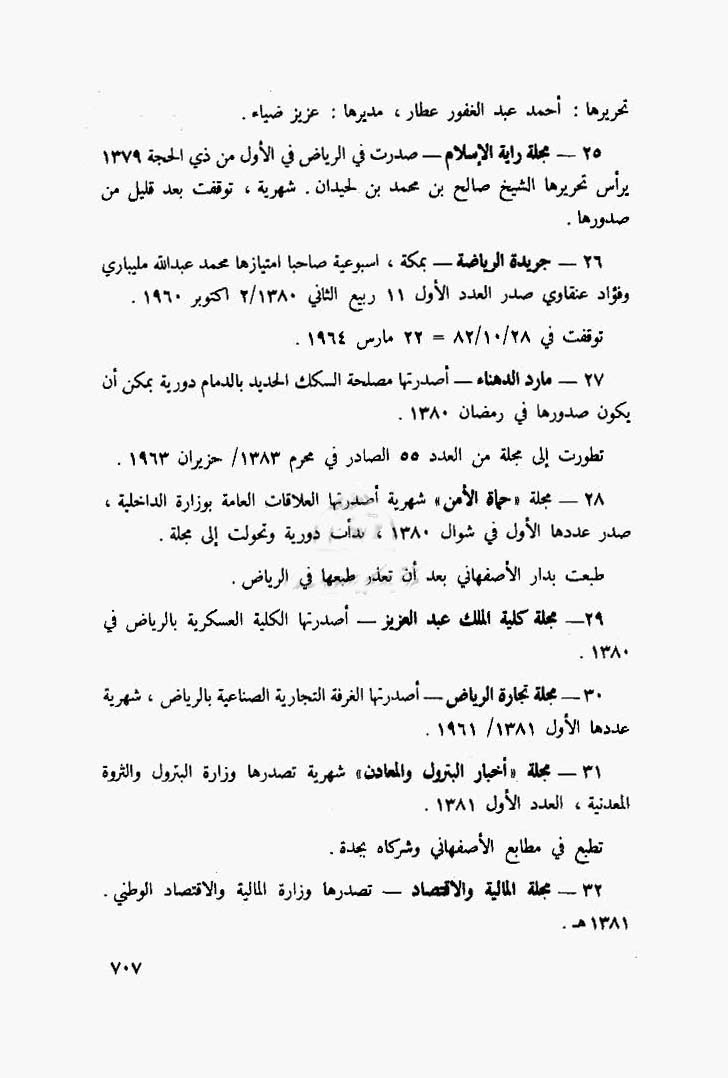 تحريرها : أحمد عبد الغفور عطار ، مديرها : عزيز ضياء .
٢٥ — مجلة راية الإسلام — صدرت في الرياض في الأول من ذي الحجة ١٣٧٩
يرأس تحريرها الشيخ صالح بن محمد بن لحيدان . شهرية ، توقفت بعد قليل من
صدورها .
٢٦ — جريدة الرياضة — بمكة ، اسبوعية صاحبا امتيازها محمد عبدالله مليباري
وفؤاد عنقاوي صدر العدد الأول ١١ ربيع الثاني ١٣٨٠/٢ اكتوبر ١٩٦٠ .
توقفت في ٨٢/١٠/٢٨ = ٢٢ مارس ١٩٦٤ .
٢٧ — مارد الدهناء — أصدرتها مصلحة السكك الحديد بالدمام دورية يمكن أن
يكون صدورها في رمضان ١٣٨٠ .
تطورت إلى مجلة من العدد ٥٥ الصادر في محرم ١٣٨٣/ حزيران ١٩٦٣ .
٢٨ — مجلة «حماة الأمن» شهرية أصدرتها العلاقات العامة بوزارة الداخلية ،
صدر عددها الأول في شوال ١٣٨٠ ، بدأت دورية وتحولت إلى مجلة .
طبعت بدار الأصفهاني بعد أن تعذر طبعها في الرياض .
٢٩— مجلة كلية الملك عبد العزيز — أصدرتها الكلية العسكرية بالرياض في
١٣٨٠ .
٣٠ — مجلة تجارة الرياض — أصدرتها الغرفة التجارية الصناعية بالرياض ، شهرية
عددها الأول ١٣٨١/ ١٩٦١ .
٣١ — مجلة «أخبار البترول والمعادن» شهرية تصدرها وزارة البترول والثروة
المعدنية ، العدد الأول ١٣٨١ .
تطبع في مطابع الأصفهاني وشركاه بجدة .
٣٢ — مجلة المالية والاقتصاد — تصدرها وزارة المالية والاقتصاد الوطني .
١٣٨١هـ .
٧٠٧